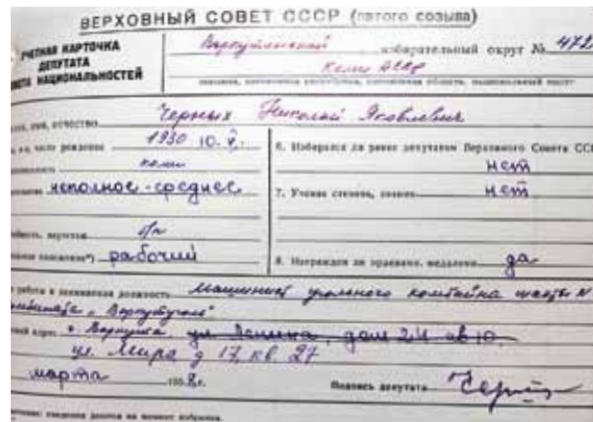 ВЕРХОВНЫЙ СОВЕТ СССР (пятого созыва)
УЧЕТНАЯ КАРТОЧКА
ДЕПУТАТА
НАЦИОНАЛЬНОСТЕЙ
Воркутинский избирательный округ № 472
Коми АССР
Черных Николай Яковлевич
отчество
число рождения 1930 10. V.
коми
неполное-среднее
б/п
рабочий
6. Избирался ли ранее депутатом Верховного Совета ССС
нет
7. Ученая степень, звание нет
8. Награжден ли орденами, медалями да
работы и занимаемая должность Машинист угольного комбайна шахты №
комбината „Воркутуголь"
адрес г. Воркута, ул. Ленина, дом 24 кв 10.
ул. Мира д 17, кв. 27
марта 1958 г. Подпись депутата
сведения даются на момент избрания.